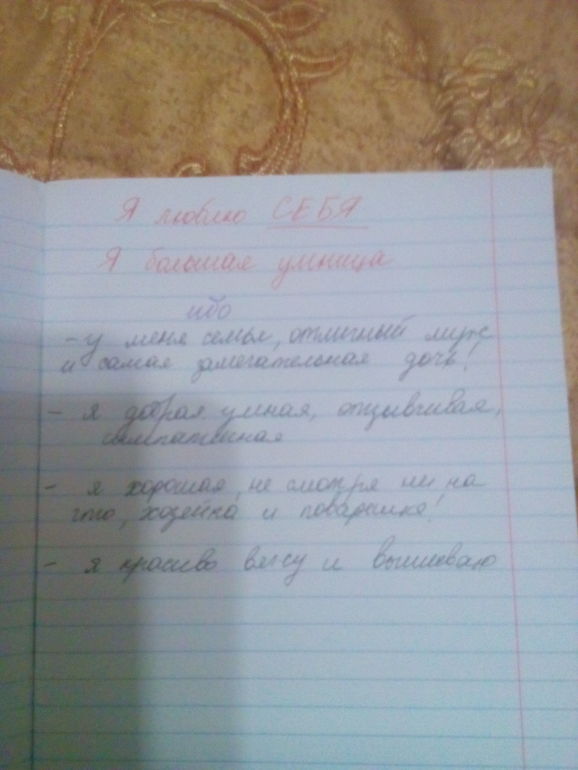 Я люблю СЕБЯ
Я большая умница
ибо
- у меня семья, отличный муж
и самая замечательная дочь!
- я добрая, умная, отзывчивая,
симпатичная
- я хорошая, не смотря ни на
что, хозяйка и поварешка!
- я красиво вяжу и вышиваю